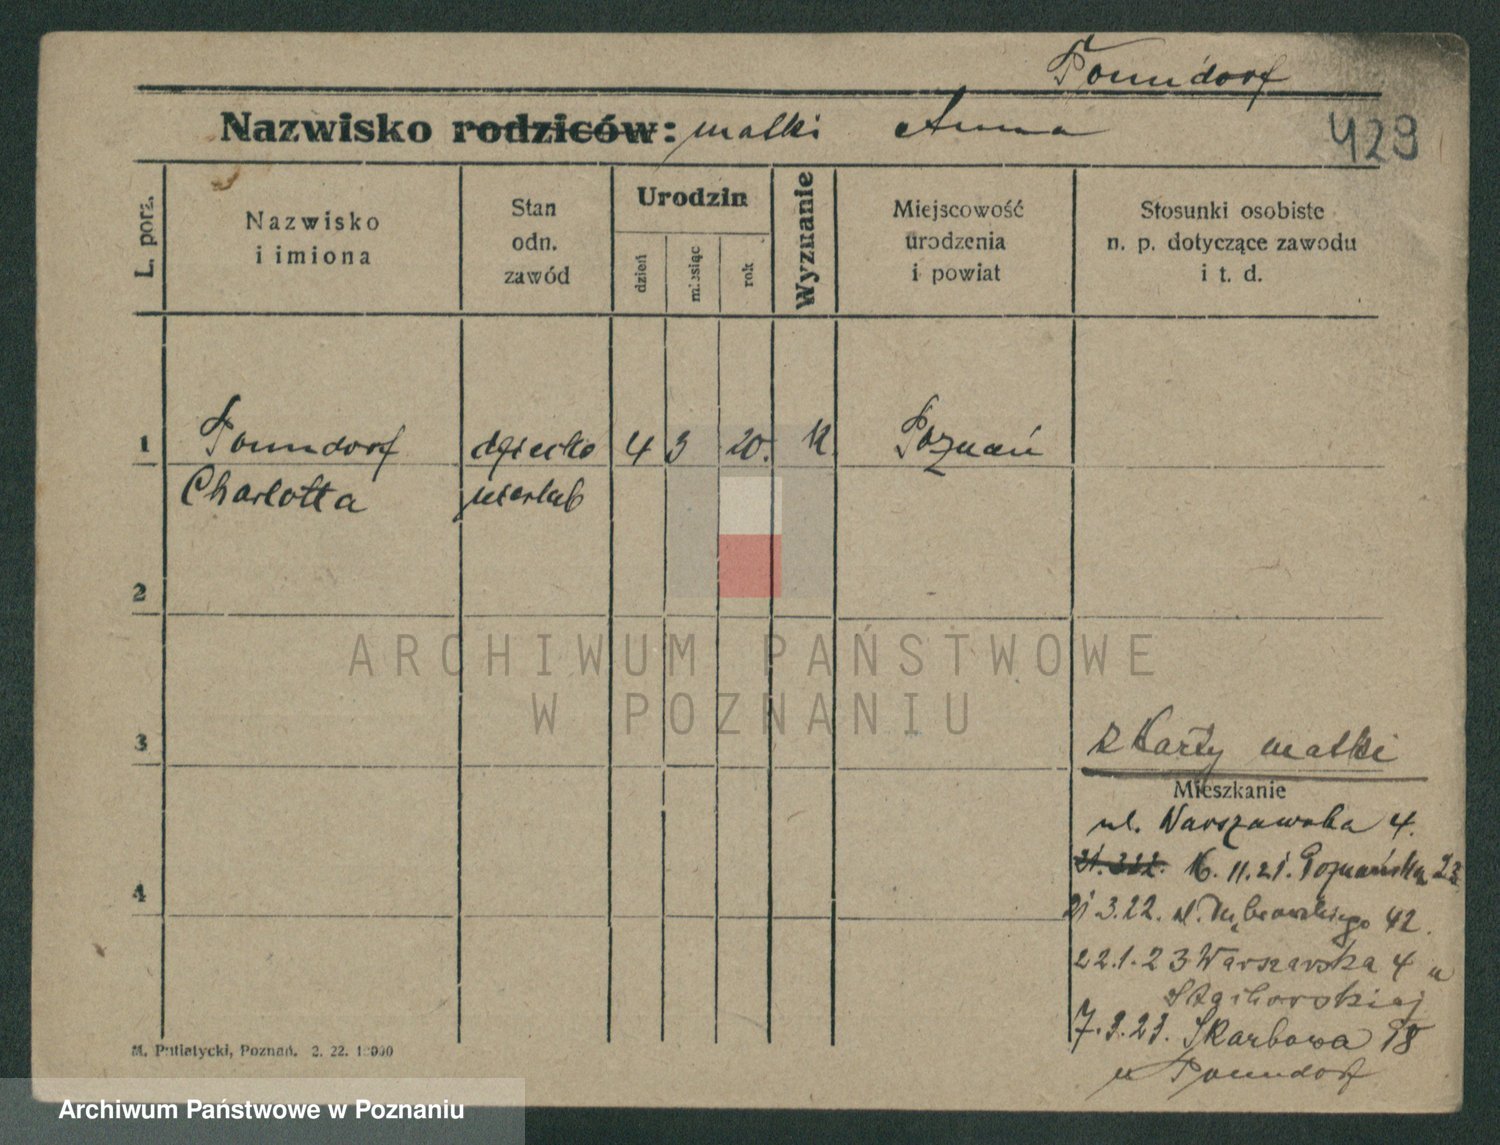 Ponndorf
Nazwisko rodziców: matki Anna
429
L. porz.
Nazwisko
i imiona
Stan
odn.
zawód
Urodzin
dzień
miesiąc
rok
Wyznanie
Miejscowość
urodzenia
i powiat
Stosunki osobiste
n. p. dotyczące zawodu
i t. d.
1 Ponndorf dziecko 4 3 20. k Poznań
Charlotta nieślub
2
3
z karty matki
Mieszkanie
ul. Warszawska 4.
16. 11. 21. Poznańska 23
4
21 3.22. ul. Dąbrowskiego 42.
22.1.23 Warszawska 4 u
7.3.23. Skarbowa 18
u Ponndorf
M. Putiatycki, Poznań. 2. 22.
ARCHIWUM PAŃSTWOWE
W POZNANIU
Archiwum Państwowe w Poznaniu